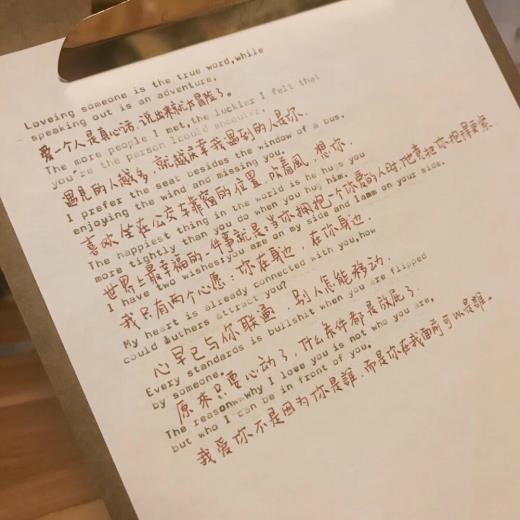 Loveing someone is the true word,while
speaking out is an adventure.
爱一个人是真心话,说出来就大冒险了。
The more people I met,the luckier I felt that
you're the person I could encouler.
遇见的人越多,就越庆幸我遇到的人是你.
I prefer the seat besides the window of a bus,
enjoying the wind and missing you.
喜欢坐在公交车靠窗的位置 吹着風,想你.
The happiest thing in the world is he hugs you
more tightly than you do when you hug him.
世界上最幸福的一件事就是:当你拥抱一个你爱的人时,他竟把你抱得更紧
I have two wishes:you are on my side and Iamm on your side.
我只有两个心愿:你在身边,在你身边.
My heart is already connected with you,how
could authers attract you?
心早已与你联通,别人怎能移动.
Every standards is bullshit when you are flipped
by someone.
原来只要心动了,什么条件都是放屁了.
The reason why I love you is not who you are,
but who I can be in front of you.
我爱你不是因为你是誰 而是你在我面前可以是誰。